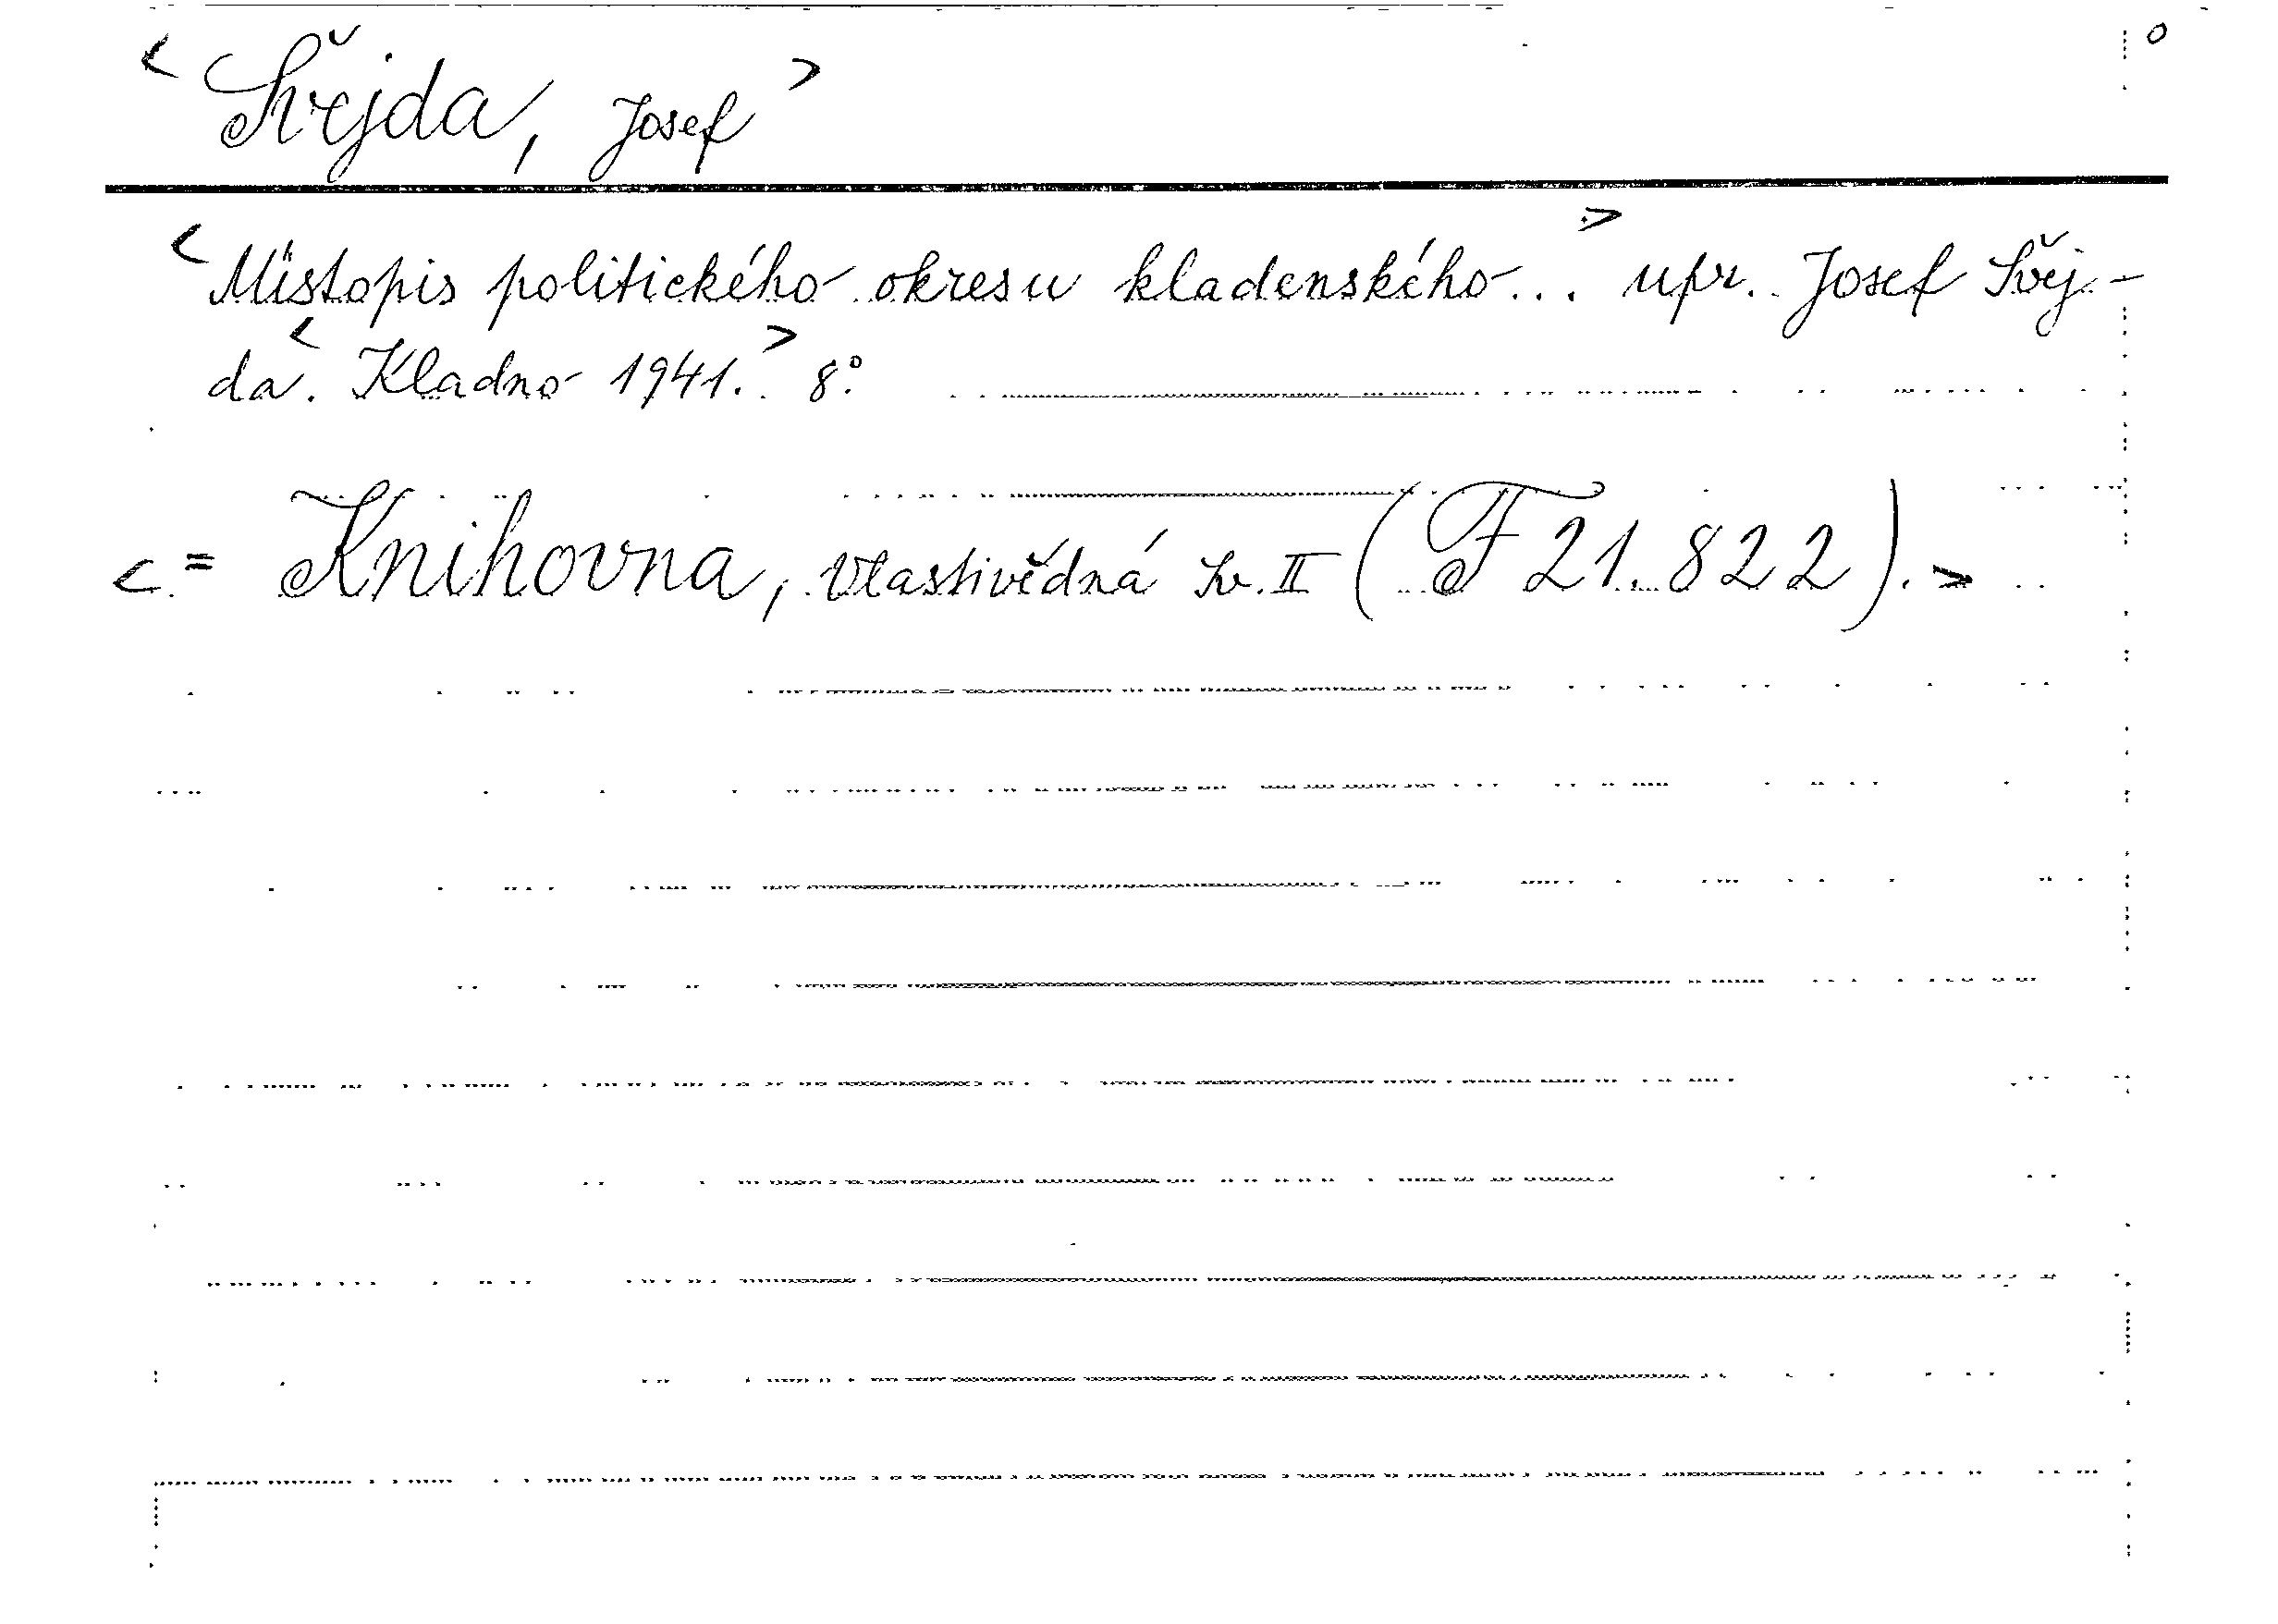 < Švejda, Josef > o
< Místopis politického okresu kladenského... > upr. Josef Švej-
da. < Kladno 1941. > 8°.
< = Knihovna, vlastivědná sv. II (F 21.822). >